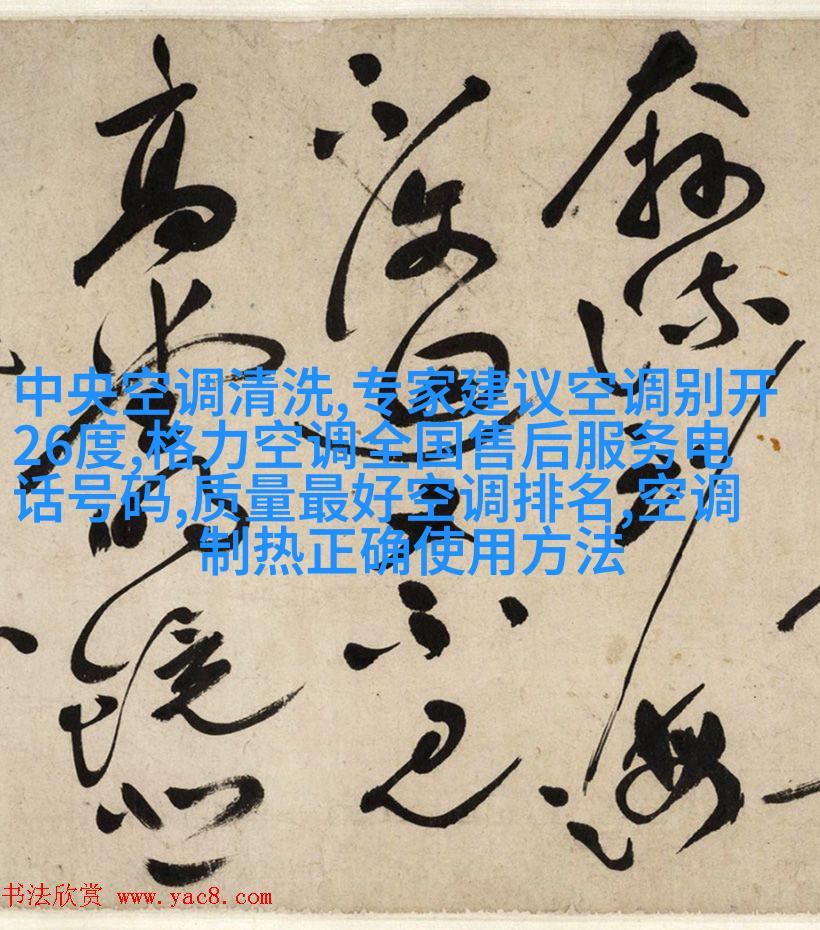 奔流到海
不復迴不見
高堂明鏡悲
中央空调清洗,专家建议空调别开
26度,格力空调全国售后服务电
话号码,质量最好空调排名,空调
制热正确使用方法
书法欣赏 www.yac8.com